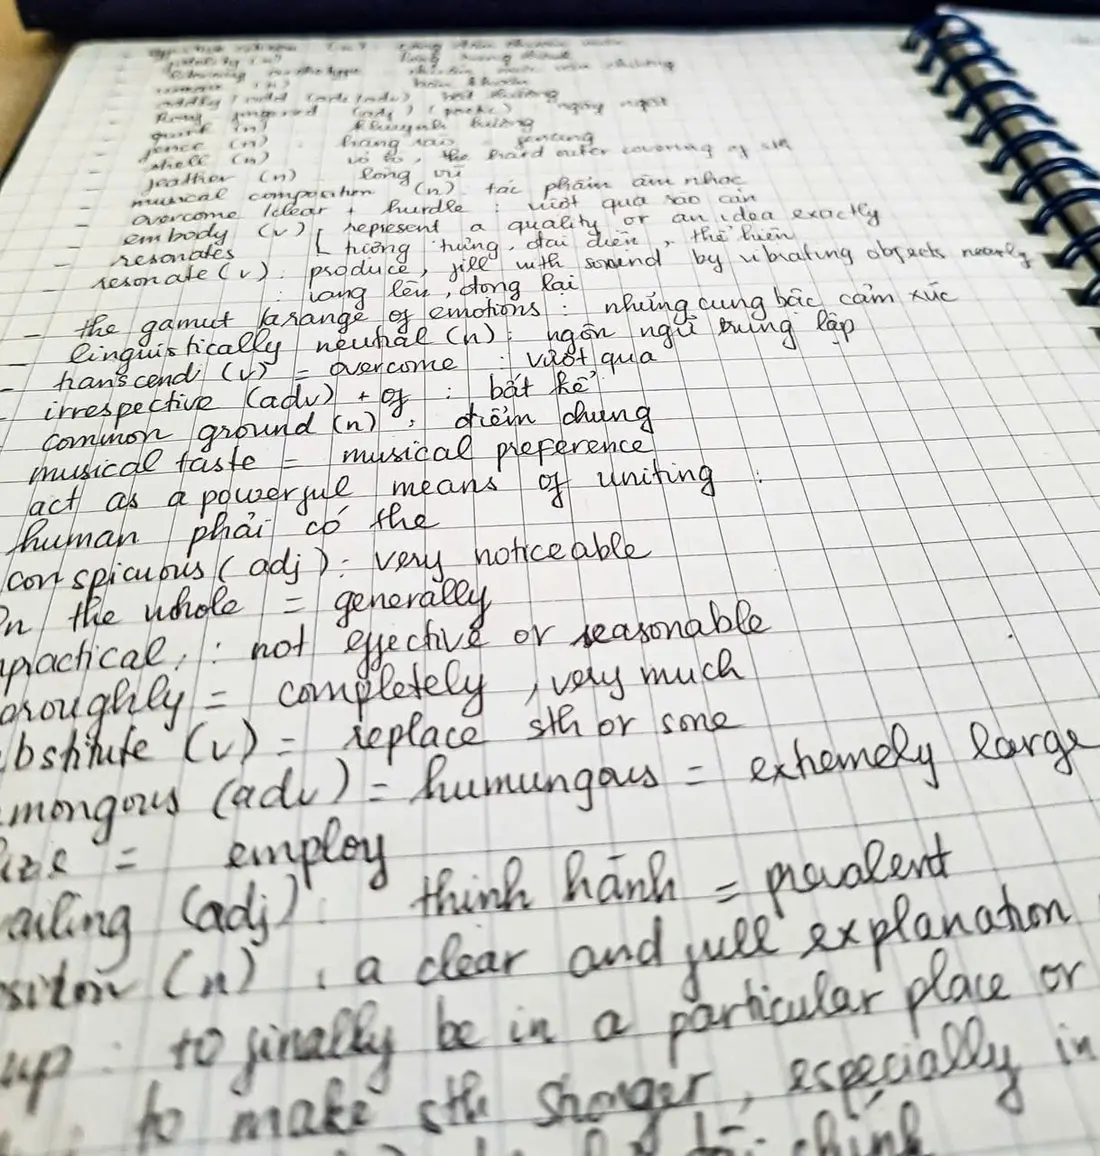 (n)
oddly / odd (adj/adv)
(adj) (poetic) ngây ngất
(n) khuynh hướng
fence (n) hàng rào
shell (n) vỏ ốc, the hard outer covering of sth
feather (n) lông vũ
musical composition (n) tác phẩm âm nhạc
overcome / clear + hurdle : vượt qua rào cản
embody (v) [ represent a quality or an idea exactly
- resonates [ tượng trưng, đại diện, thể hiện
- resonate (v) : produce, fill with sound by vibrating objects nearly
: vang lên, đọng lại
- the gamut / range of emotions : những cung bậc cảm xúc
- linguistically neutral (n) : ngôn ngữ trung lập
- transcend (v) = overcome : vượt qua
irrespective (adv) + of : bất kể
common ground (n) : điểm chung
musical taste = musical preference
act as a powerful means of uniting :
human phải có the
conspicuous (adj) : very noticeable
On the whole = generally
practical, : not effective or reasonable
oroughly = completely, very much
bstitute (v) = replace sth or sone
mongous (adv) = humungous = extremely large
lize = employ
ailing (adj) : thịnh hành = prevalent
sition (n) : a clear and full explanation
up : to finally be in a particular place or
: to make sth stronger, especially in
chính